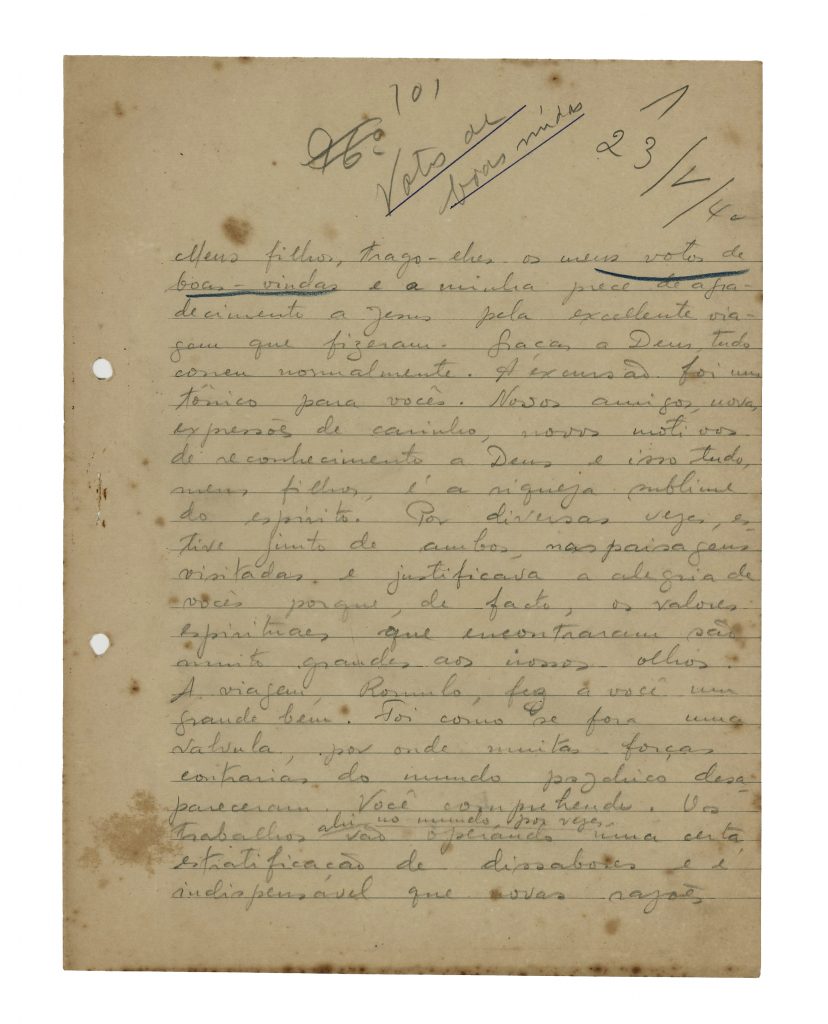 101
Votos de
boas vindas
23/1/40
Meus filhos, trago-lhes os meus votos de
boas-vindas e a minha prece de agra-
decimento a Jesus pela excellente via-
gem que fizeram. Graças a Deus, tudo
correu normalmente. A excursão foi um
tônico para vocês. Novos amigos, novas
expressões de carinho, novos motivos
de reconhecimento a Deus e isso tudo,
meus filhos, é a riqueza sublime
do espírito. Por diversas vezes, es-
tive junto de ambos, nas paisagens
visitadas e justificava a alegria de
vocês porque, de facto, os valores
espirituaes que encontraram são
muito grandes aos nossos olhos.
A viagem, Romulo, fez a você um
grande bem. Foi como se fora uma
valvula, por onde muitas forças
contrarias do mundo psychico desa-
pareceram. Você comprehende. Os
trabalhos ahi no mundo por vezes vão operando uma certa
estratificação de dissabores e é
indispensável que novas razões